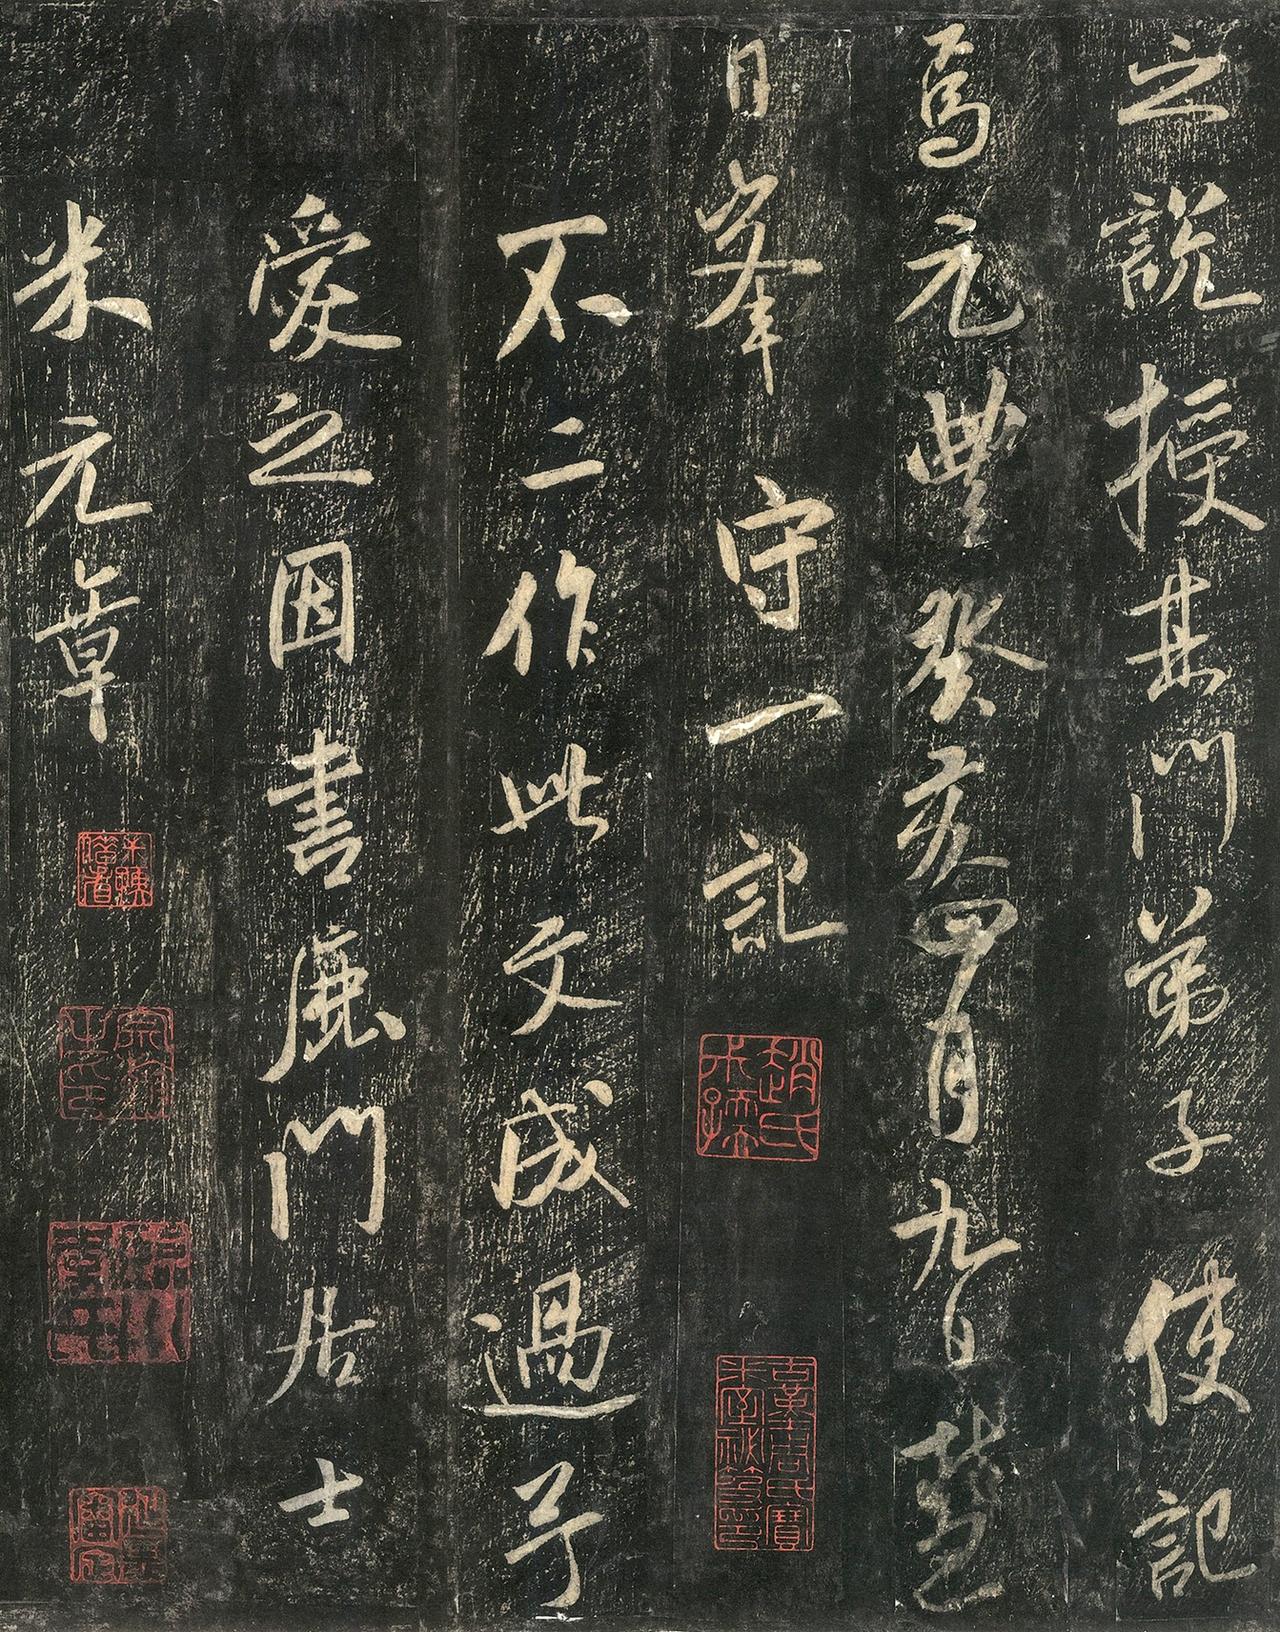 之說授其門弟子使記
焉元豐癸亥四月九日慧
日峯守一記
不二作此文成過予
愛之因書鹿門居士
米元章
趙氏